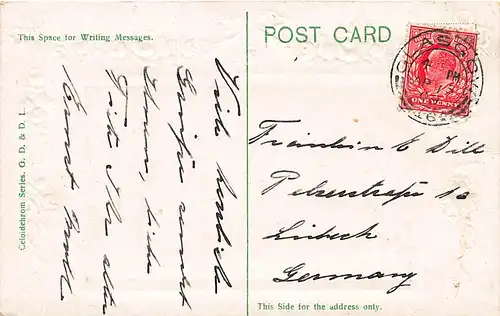 This Space for Writing Messages.
POST CARD
GLASGOW
4 PM
ONE PENNY
Viele herzliche
Grüsse sendet
Ihnen, liebe
Ihr alter
Ernst
Fräulein E Dill
Pelzerstraße 10
Lübeck
Germany
This Side for the address only.
Celoidchrom Series. G. D. & D. L.